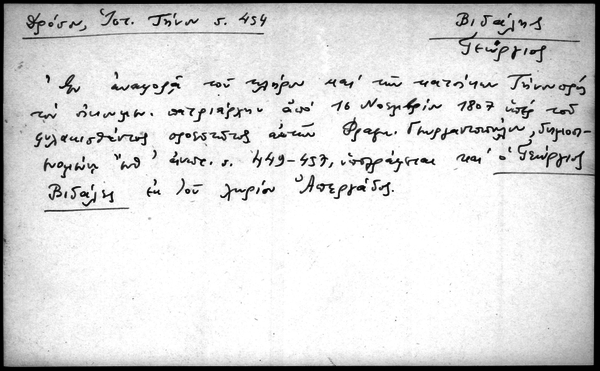 Δρόσου, Ἱστ. Τήνου σ. 454
Βιδάλης
Γεώργιος
Ἐν ἀναφορᾷ τοῦ κλήρου καὶ τῶν κατοίκων Τήνου πρὸς
τὸν οἰκουμεν. πατριάρχην ἀπὸ 16 Νοεμβρίου 1807 ὑπὲρ τοῦ
φυλακισθέντος προεστῶτος αὐτῶν Φραγκ. δημοσ-
ἐνθ' ἀνωτ. σ. 449-457, ὑπογράφεται καὶ ὁ Γεώργιος
Βιδάλης ἐκ τοῦ χωρίου Ἀπεργάδος.